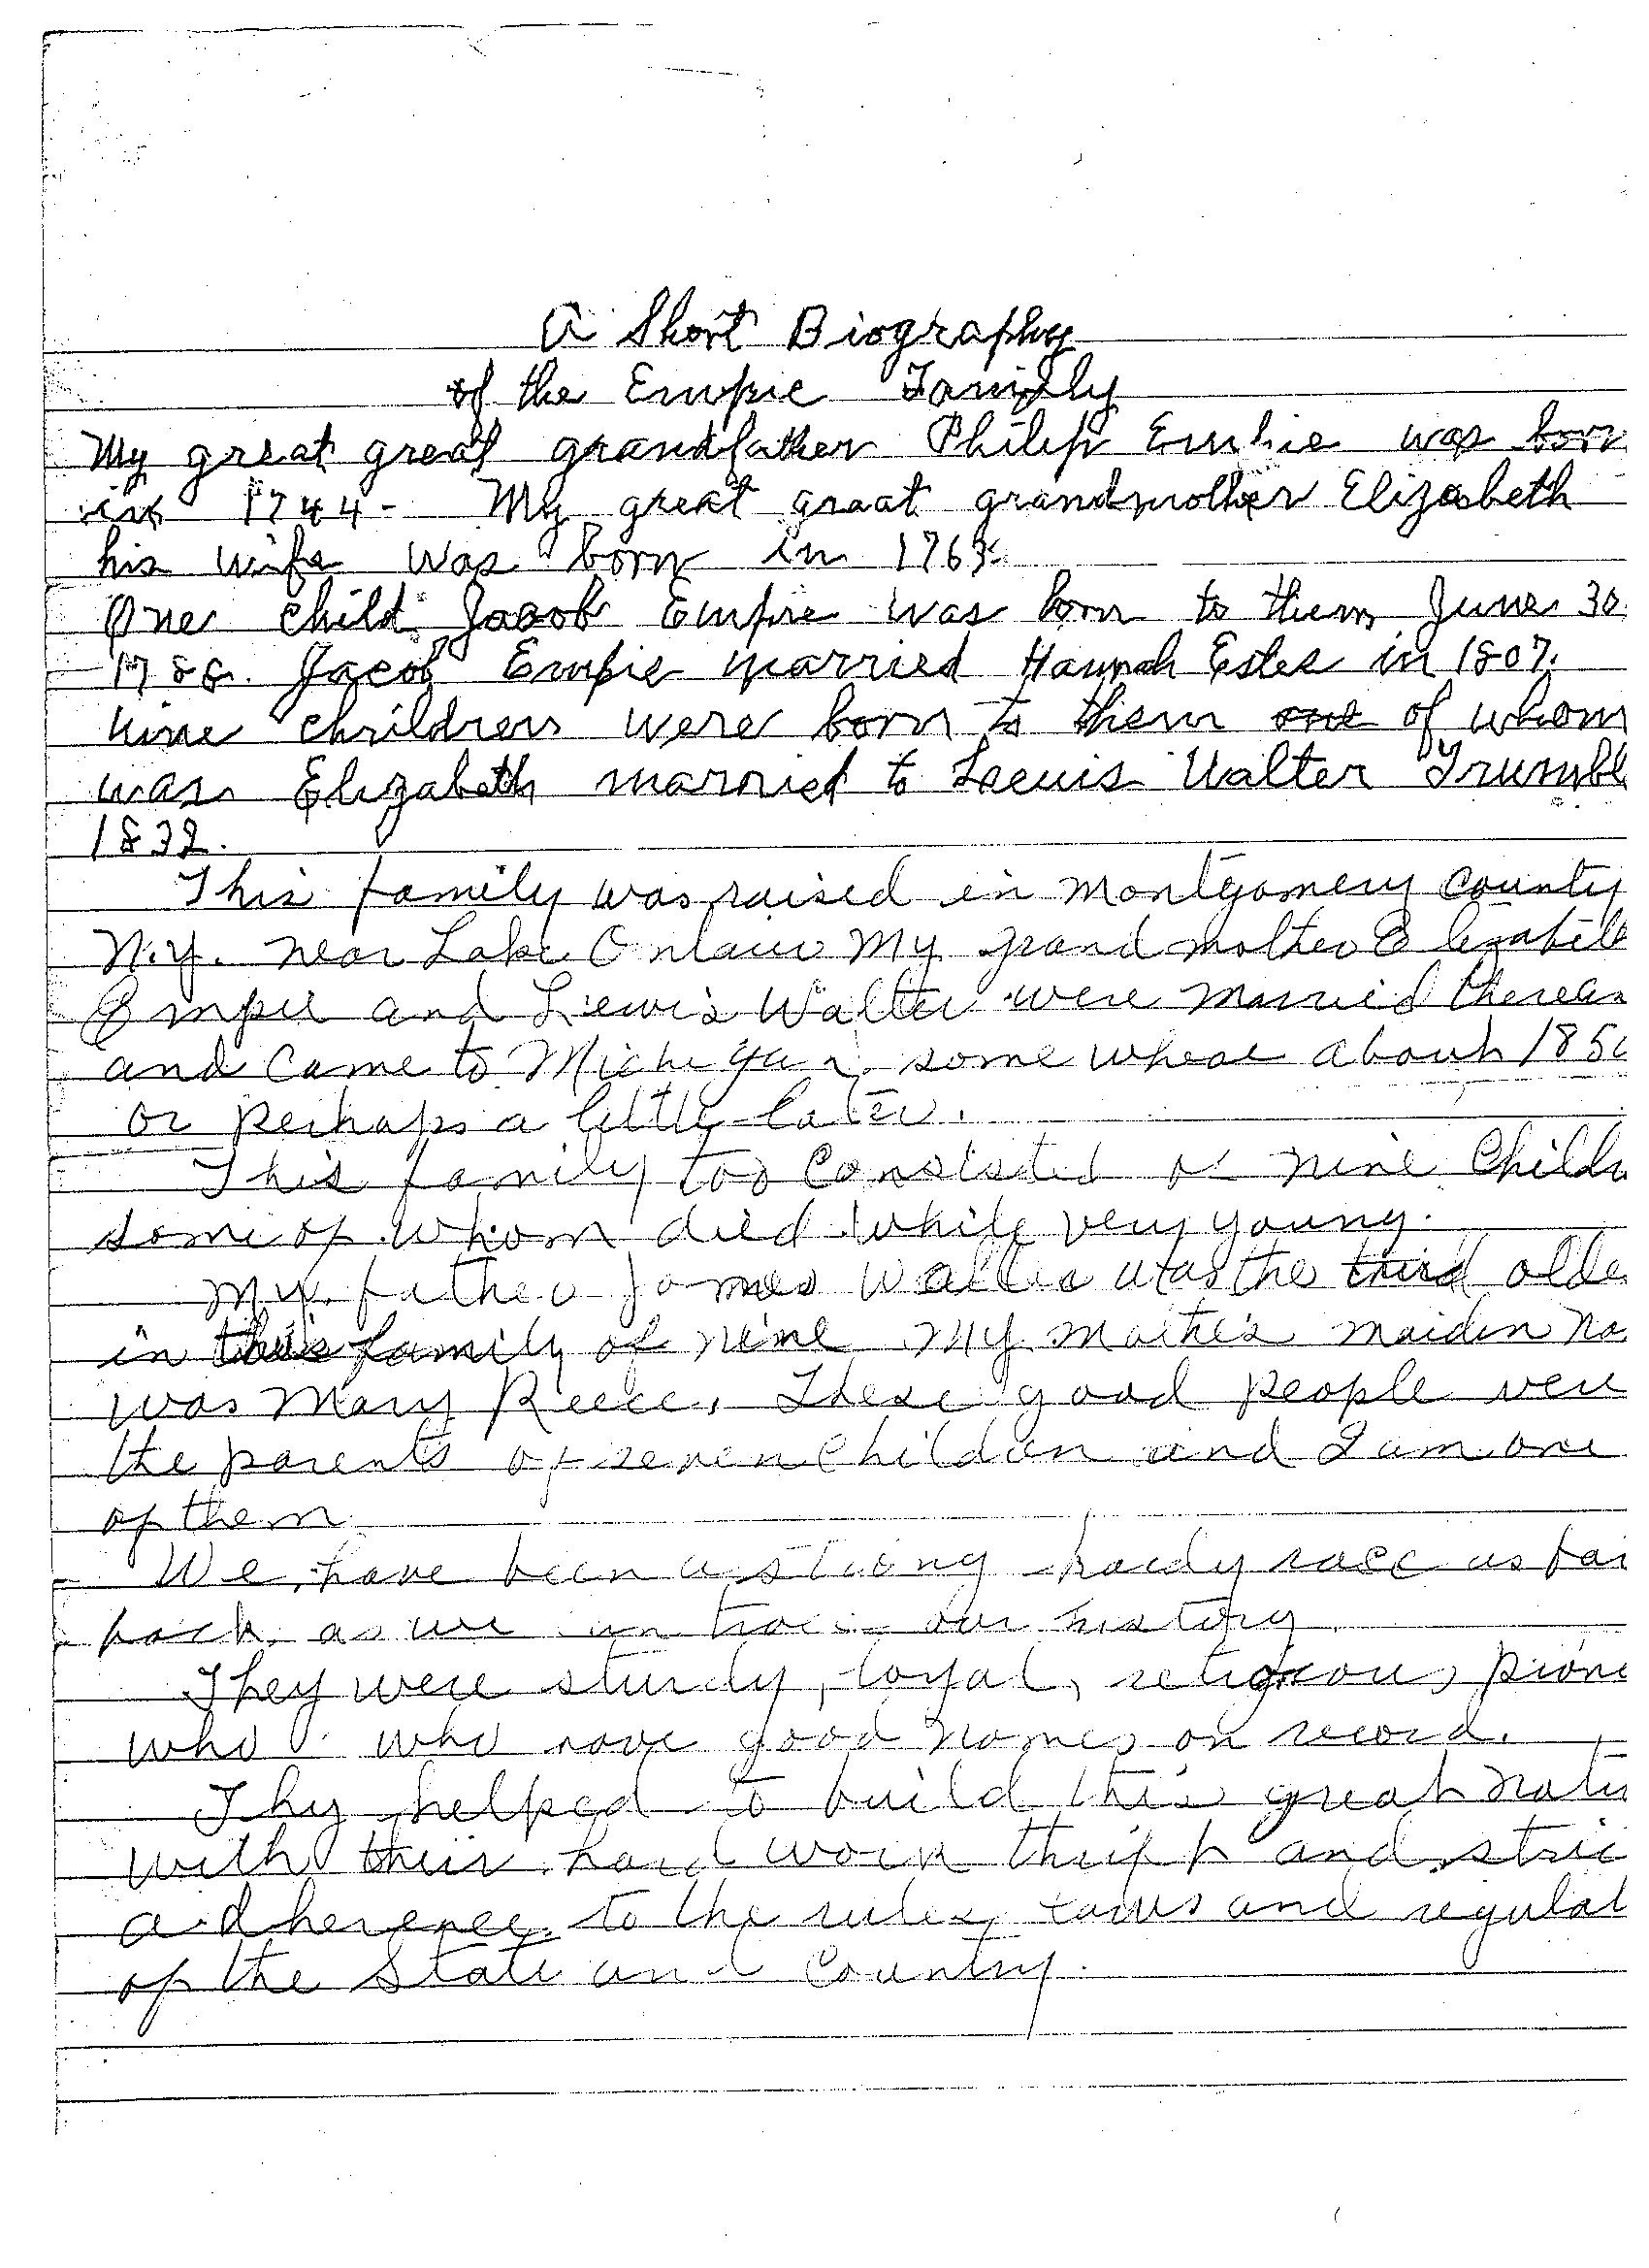 A Short Biography
of the Empie Family
My great great grandfather Philip Empie was born
in 1744- My great great grandmother Elizabeth
his wife was born in 1763.
One child Jacob Empie was born to them June 30
1788. Jacob Empie married Hannah Estes in 1807.
nine children were born to them one of whom
was Elizabeth married to Lewis Walter Trumbl
1832.
This family was raised in Montgomery County
N.Y. near Lake My grand mother Elizabeth
Empie and Lewis Walter were married there
and came to Michigan some where about 185
or perhaps a little later.
This family too consisted of nine Childr
some of whom died while very young.
My father James Walter was the third olde
in this family of nine My mother's maiden na
was Mary Reece, These good people were
the parents of seven children and I am one
of them
We have been a strong hardy race as far
back as we can trace our history
They were sturdy, loyal, religious, pione
who who have good names on record.
They helped to build this great nati
with their hard work thrift and stric
adherence to the rules, laws and regulat
of the State and Country.